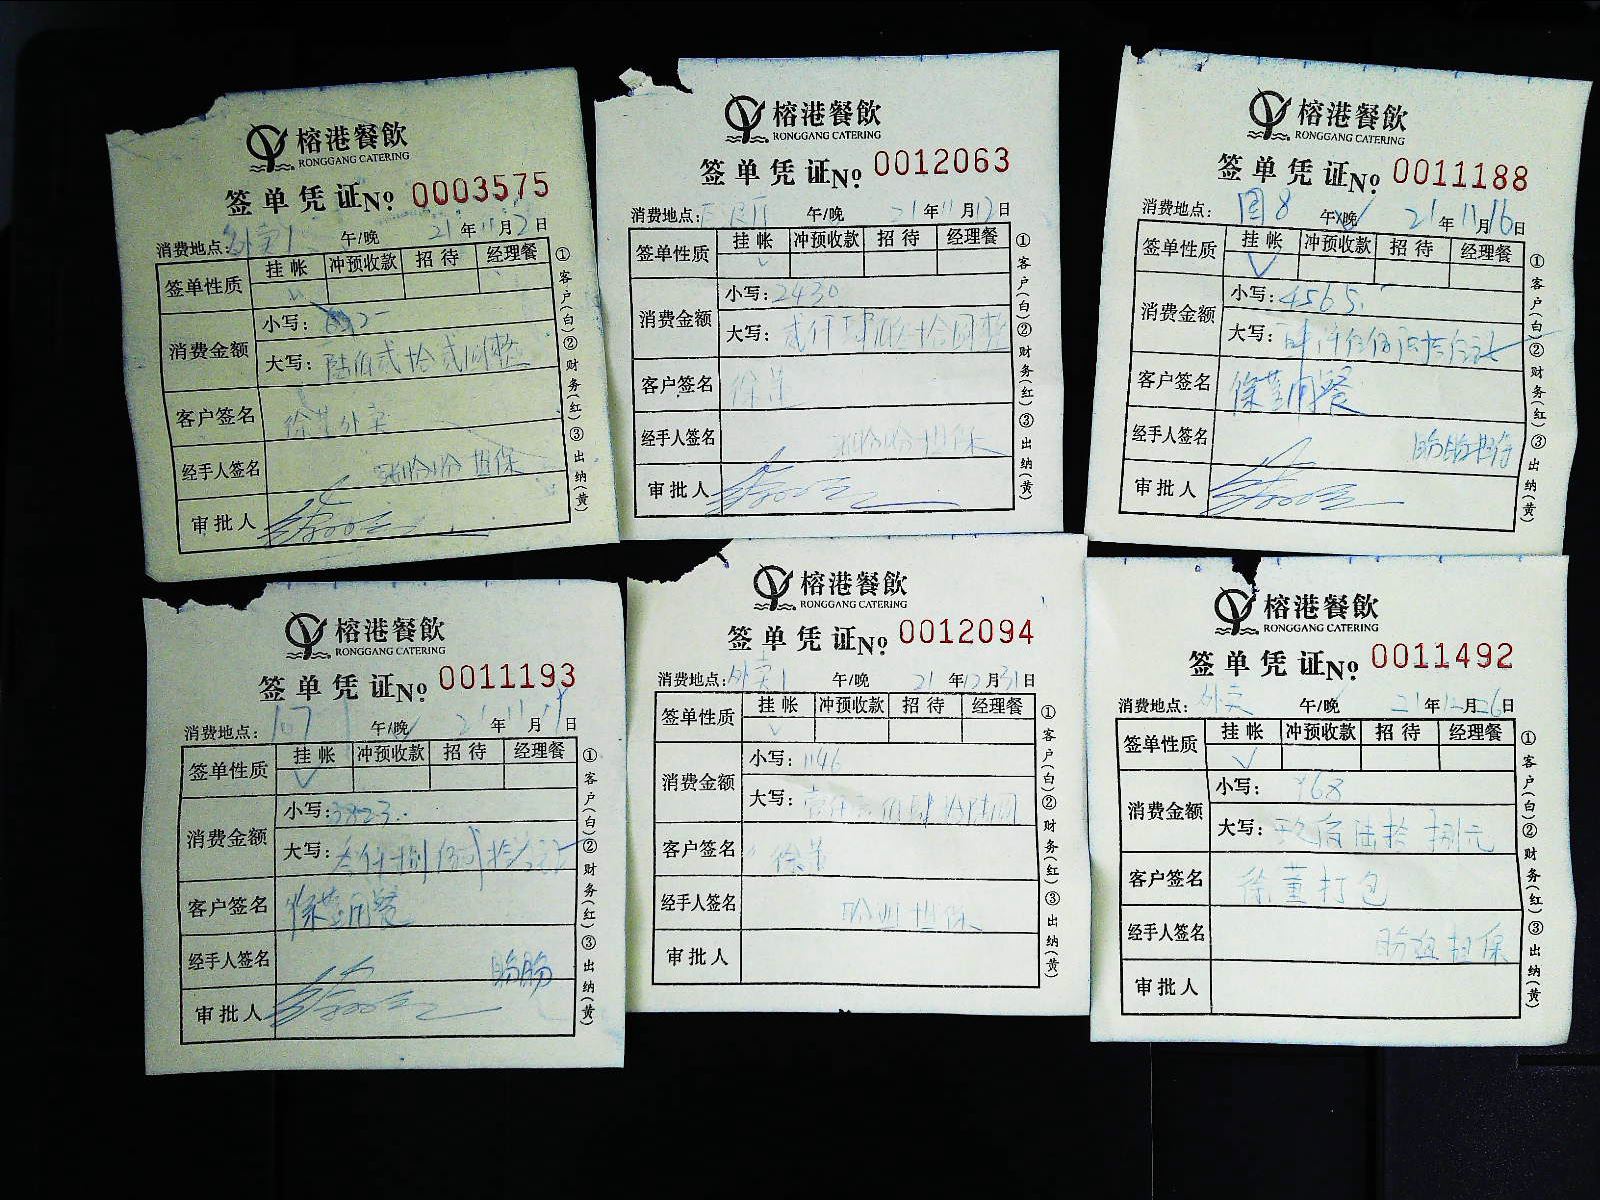 榕港餐飲
RONGGANG CATERING
签单凭证No 0003575
消费地点: 外卖1 午/晚 21年11月2日
签单性质 挂帐 冲预收款 招待 经理餐
消费金额 小写:
大写: 陆佰贰拾贰圆整
客户签名 徐董外卖
经手人签名 担保
审批人
①客户(白)②财务(红)③出纳(黄)
榕港餐飲
RONGGANG CATERING
签单凭证No 0012063
消费地点: 午/晚 21年11月12日
签单性质 挂帐 冲预收款 招待 经理餐
消费金额 小写: 2430
大写: 贰仟肆佰叁拾圆整
客户签名 徐董
经手人签名 担保
审批人
①客户(白)②财务(红)③出纳(黄)
榕港餐飲
RONGGANG CATERING
签单凭证No 0011188
消费地点: 园8 午/晚 21年11月16日
签单性质 挂帐 冲预收款 招待 经理餐
消费金额 小写: 4565.
大写: 肆仟伍佰陆拾伍元
客户签名 徐董用餐
经手人签名 担保
审批人
①客户(白)②财务(红)③出纳(黄)
榕港餐飲
RONGGANG CATERING
签单凭证No 0011193
消费地点: 107 午/晚 21年11月日
签单性质 挂帐 冲预收款 招待 经理餐
消费金额 小写: 3823.
大写: 叁仟捌佰贰拾叁元
客户签名 徐董用餐
经手人签名
审批人
①客户(白)②财务(红)③出纳(黄)
榕港餐飲
RONGGANG CATERING
签单凭证No 0012094
消费地点: 外卖1 午/晚 21年12月31日
签单性质 挂帐 冲预收款 招待 经理餐
消费金额 小写: 1146
大写: 壹仟壹佰肆拾陆圆
客户签名 徐董
经手人签名 担保
审批人
①客户(白)②财务(红)③出纳(黄)
榕港餐飲
RONGGANG CATERING
签单凭证No 0011492
消费地点: 外卖 午/晚 21年12月26日
签单性质 挂帐 冲预收款 招待 经理餐
消费金额 小写: 968
大写: 玖佰陆拾捌元
客户签名 徐董打包
经手人签名 担保
审批人
①客户(白)②财务(红)③出纳(黄)